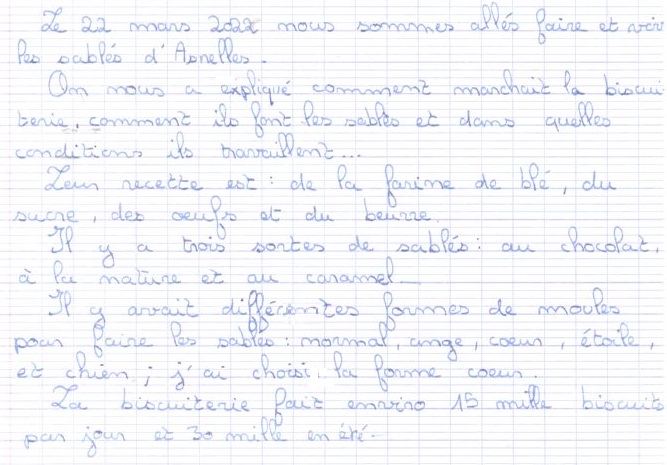 Le 22 mars 2022 nous sommes allés faire et voir
les sablés d'Asnelles.
On nous a expliqué comment marchait la biscui
terie, comment ils font les sablés et dans quelles
conditions ils travaillent...
Leur recette est : de la farine de blé, du
sucre, des oeufs et du beurre.
Il y a trois sortes de sablés : au chocolat,
à la nature et au caramel.
Il y avait différentes formes de moules
pour faire les sablés : normal, ange, coeur, étoile,
et chien ; j'ai choisi la forme coeur.
La biscuiterie fait enviro 15 mille biscuits
par jour et 30 mille en été.